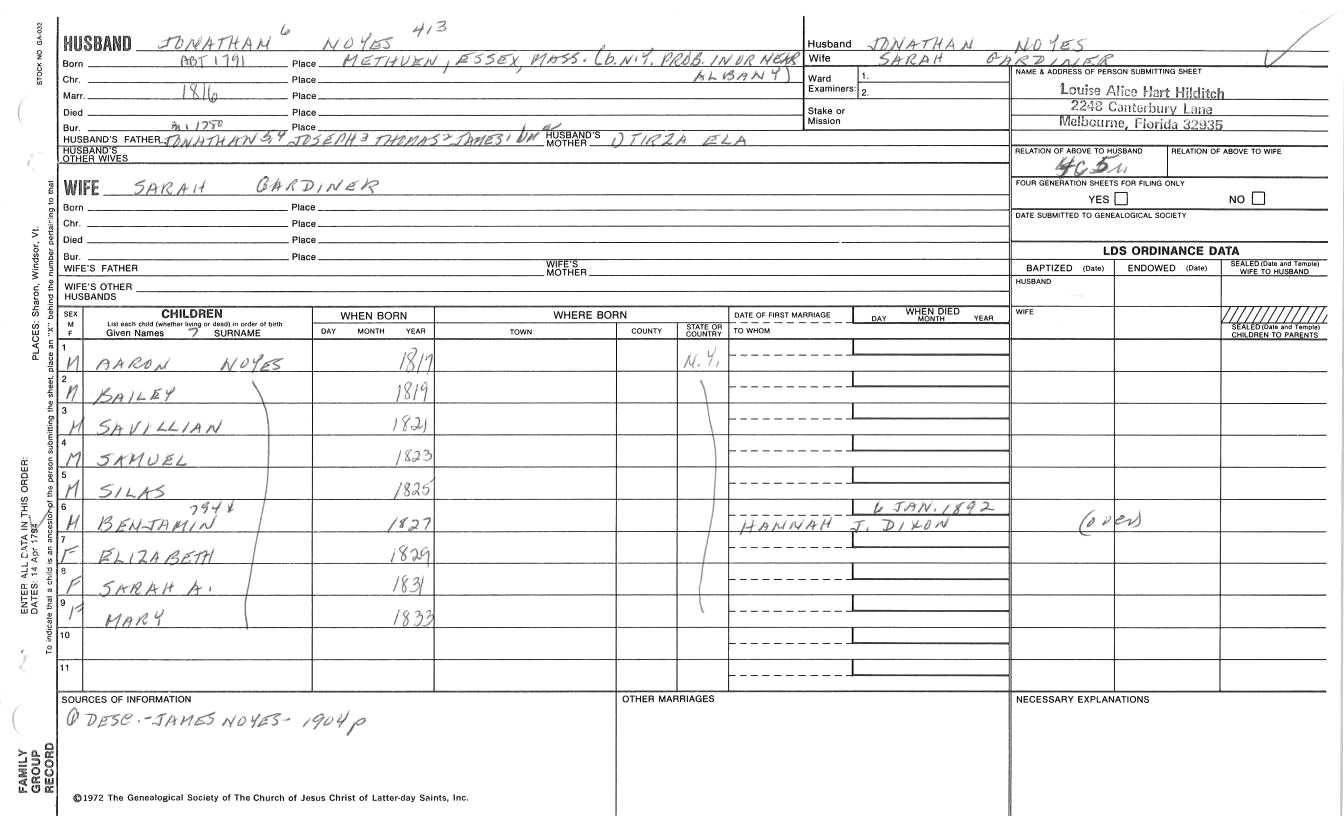 STOCK NO GA-032
HUSBAND JONATHAN 6 NOYES 413
Born ABT 1791 Place METHUEN, ESSEX, MASS. (b. N.Y. PROB. IN OR NEAR ALBANY)
Chr. Place
Marr. 1816 Place
Died Place
Bur. Place
m. 1780
HUSBAND'S FATHER JONATHAN 5, 4 JOSEPH 3 THOMAS 2 JAMES 1 HUSBAND'S MOTHER TIRZA ELA
HUSBAND'S OTHER WIVES
Husband JONATHAN NOYES
Wife SARAH GARDINER
Ward Examiners: 1.
2.
Stake or Mission
NAME & ADDRESS OF PERSON SUBMITTING SHEET
Louise Alice Hart Hilditch
2248 Canterbury Lane
Melbourne, Florida 32935
RELATION OF ABOVE TO HUSBAND RELATION OF ABOVE TO WIFE
FOUR GENERATION SHEETS FOR FILING ONLY
YES NO
DATE SUBMITTED TO GENEALOGICAL SOCIETY
WIFE SARAH GARDINER
Born Place
Chr. Place
Died Place
Bur. Place
WIFE'S FATHER WIFE'S MOTHER
WIFE'S OTHER HUSBANDS
LDS ORDINANCE DATA
BAPTIZED (Date) ENDOWED (Date) SEALED (Date and Temple) WIFE TO HUSBAND
HUSBAND
WIFE
SEALED (Date and Temple) CHILDREN TO PARENTS
SEX M F
CHILDREN
List each child (whether living or dead) in order of birth
Given Names 7 SURNAME
WHEN BORN
DAY MONTH YEAR
WHERE BORN
TOWN COUNTY STATE OR COUNTRY
DATE OF FIRST MARRIAGE
TO WHOM
WHEN DIED
DAY MONTH YEAR
1 M AARON NOYES 1817 N.Y.
2 M BAILEY 1819
3 M SAVILLIAN 1821
4 M SAMUEL 1823
5 M SILAS 1825
794
6 M BENJAMIN 1827 HANNAH J. DIXON 6 JAN. 1892 (over)
7 F ELIZABETH 1829
8 F SARAH A. 1831
9 F MARY 1833
10
11
SOURCES OF INFORMATION
① DESC.-JAMES NOYES- 1904 p
OTHER MARRIAGES
NECESSARY EXPLANATIONS
©1972 The Genealogical Society of The Church of Jesus Christ of Latter-day Saints, Inc.
PLACES: Sharon, Windsor, Vt.
To indicate that a child is an ancestor of the person submitting the sheet, place an "X" behind the number pertaining to that
ENTER ALL DATA IN THIS ORDER:
DATES: 14 Apr 1794
FAMILY GROUP RECORD